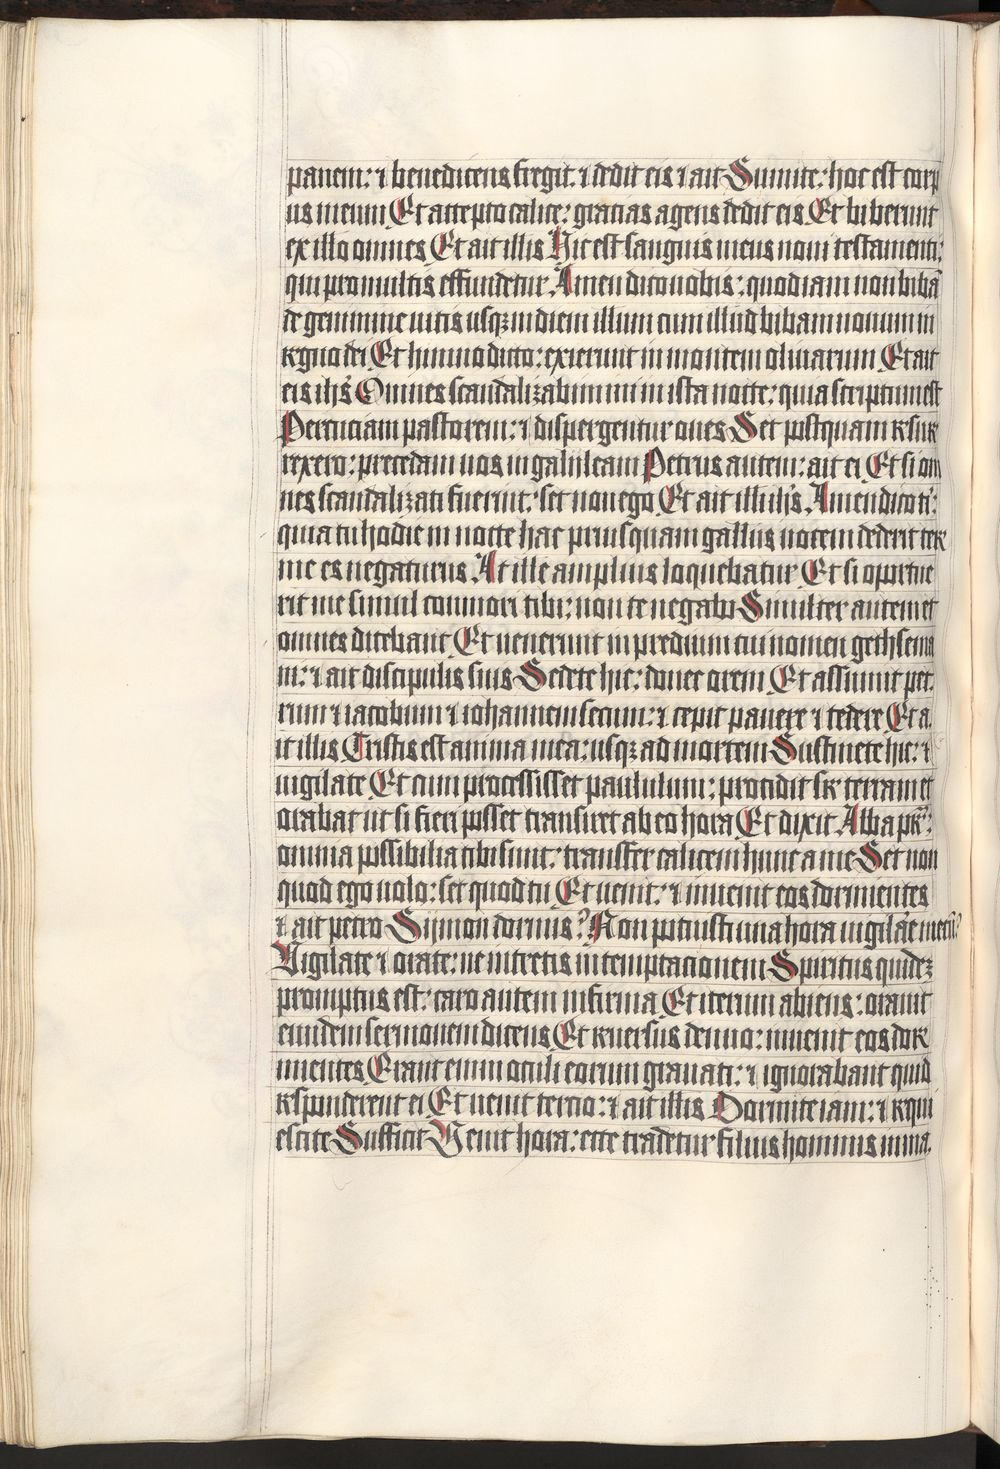 panem: ⁊ benedicens fregit. ⁊ dedit eis ⁊ ait Sumite: hoc est corp
us meum Et accepto calice: gracias agens dedit eis Et biberunt
ex illo omnes Et ait illis Hic est sanguis meus noui testamenti:
qui pro multis effundetur. Amen dico uobis: quod iam non bibā
de genimine uitis usqꝫ in diem illum cum illud bibam nouum in
regno dei Et himno dicto: exierunt in montem oliuarum Et ait
eis ihs̄ Omnes scandalizabimini in ista nocte: quia scriptum est
Percuciam pastorem: ⁊ dispergentur oues Set postquam resur
rexero: precedam uos in galileam Petrus autem: ait ei Et si om
nes scandalizati fuerint: set non ego Et ait illi ihs̄ Amen dico ti:
quia tu hodie in nocte hac priusquam gallus uocem dederit ter
me es negaturus At ille amplius loquebatur Et si oportue
rit me simul commori tibi: non te negabo Similiter autem et
omnes dicebant Et uenerunt in predium cui nomen gethsema
ni: ⁊ ait discipulis suis Sedete hic: donec orem Et assumit pet.
rum ⁊ iacobum ⁊ iohannem secum: ⁊ cepit pauere ⁊ tedere Et a.
it illis Tristis est anima mea: usqꝫ ad mortem Sustinete hic: ⁊
uigilate Et cum processisset paululum: procidit sr terram et
orabat ut si fieri posset transiret ab eo hora Et dixit Abba pr̄:
omnia possibilia tibi sunt: transfer calicem hunc a me Set non
quod ego uolo: set quod tu Et uenit: ⁊ inuenit eos dormientes
⁊ ait petro Sijmon dormis? Non potuisti una hora uigilare mecū?
Vigilate ⁊ orate: ne intretis in temptacionem Spiritus quideꝫ
promptus est: caro autem infirma Et iterum abiens: orauit
eundem sermonem dicens Et reuersus denuo: inuenit eos dor
mientes Erant enim oculi eorum grauati: ⁊ ignorabant quid
responderent ei Et uenit tercio: ⁊ ait illis Dormite iam: ⁊ requi
escite Sufficit Venit hora: ecce tradetur filius hominis in ma.